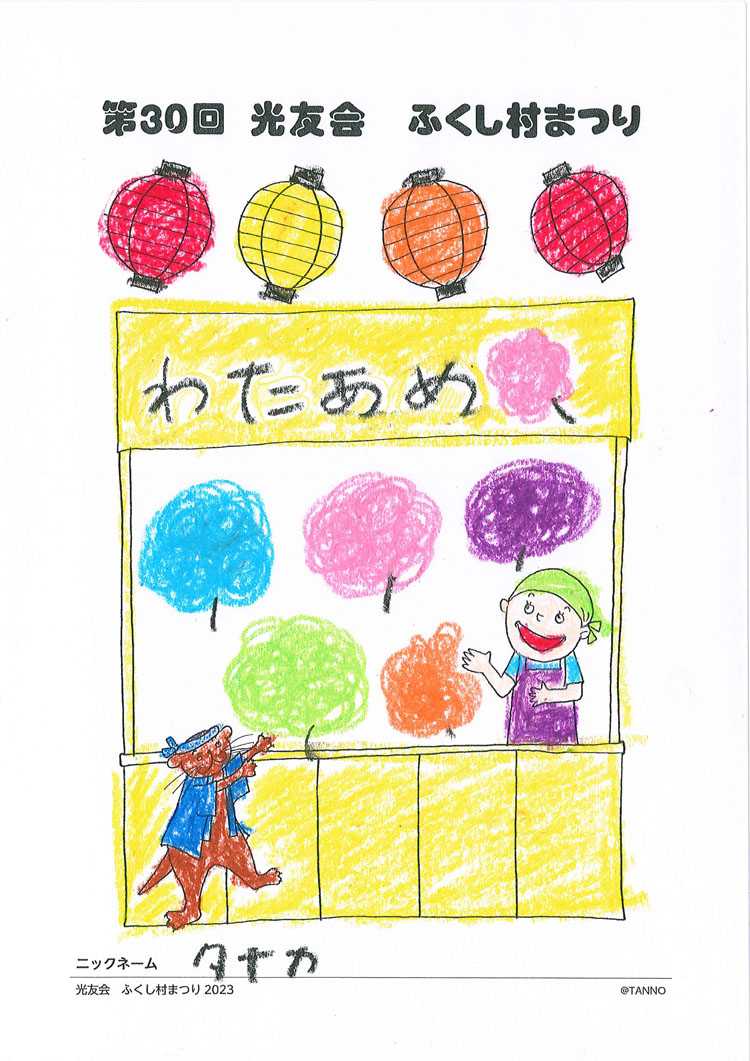 第30回 光友会 ふくし村まつり
わたあめ
ニックネーム タナカ
光友会 ふくし村まつり 2023 @TANNO